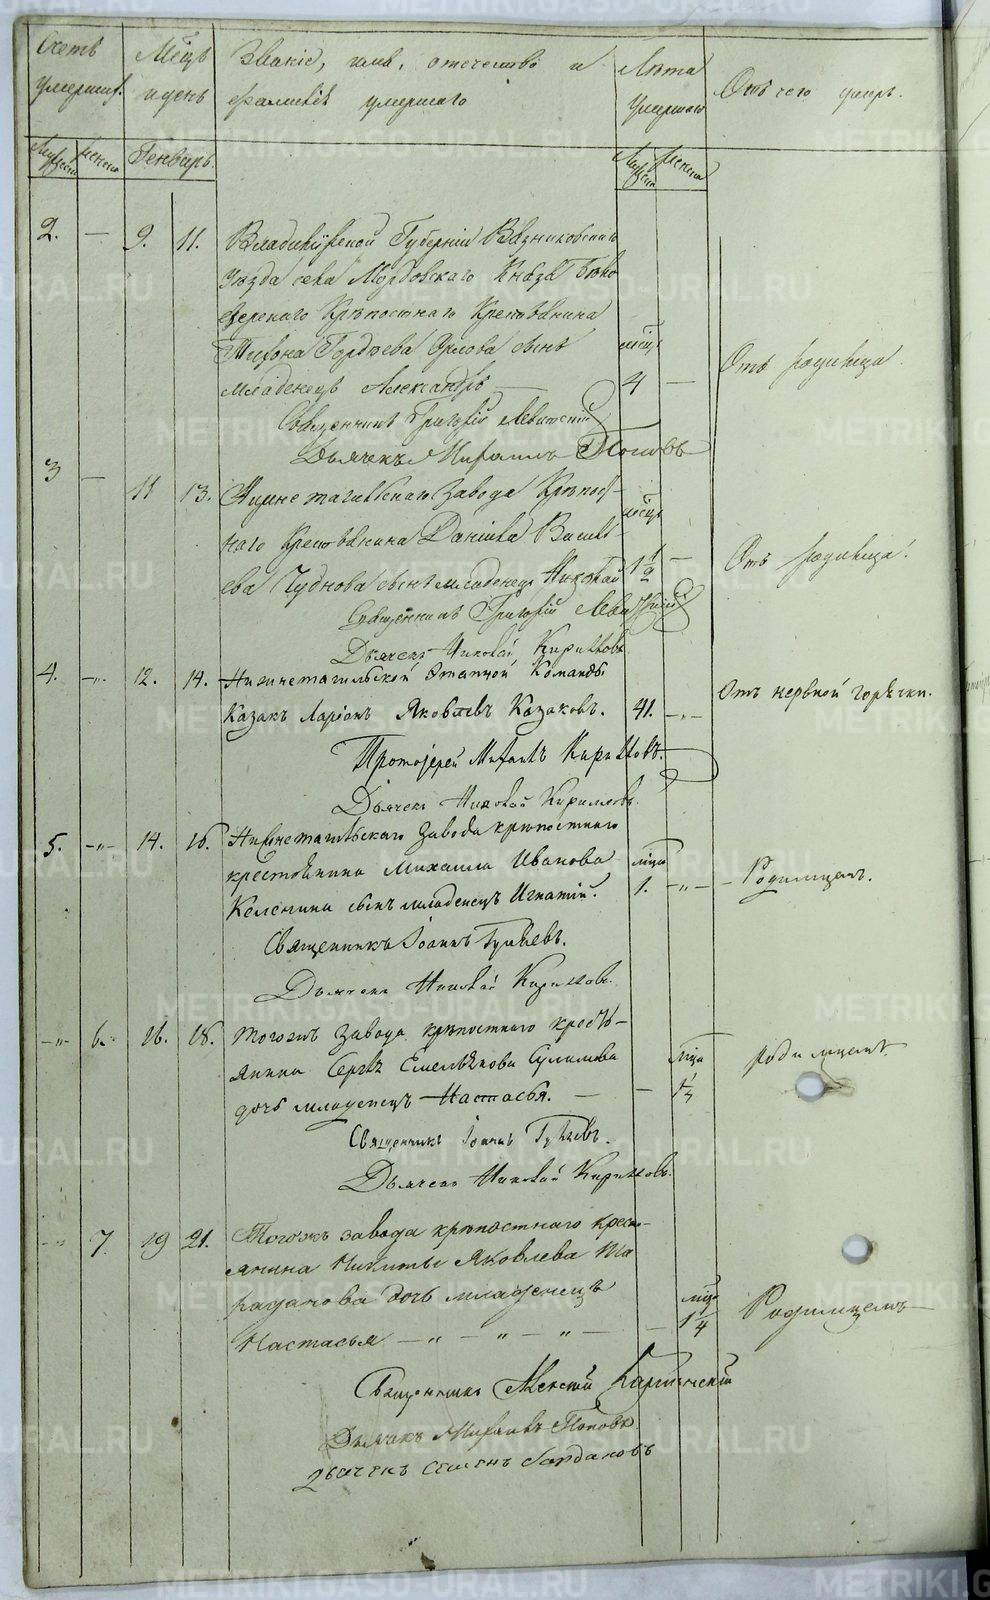 Счетъ умершихъ.
Мѣсяцъ и день
Званіе, имя, отечество и фамилія умершаго
Лѣта умершаго
Отъ чего умеръ.
Мужеска Женска
Генварь.
Мужеска Женска
2. — 9. 11. Владимірской Губерніи Вязниковскаго
Уѣзда села Мордовскаго Князя Бѣло
зерскаго Крѣпостнаго Крестьянина
Тихона Гордѣева Орлова сынъ мѣсяц
младенецъ Александръ — 4 — Отъ родимца.
Священникъ Григорій Левитскій
Дьячекъ Михаилъ Поповъ
3 — 11 13. Нижнетагильскаго завода Крѣпост- мѣсяц
наго Крестьянина Данила Василь-
ева Чуднова сынъ младенецъ Николай 1 1/2 — Отъ родимца.
Священникъ Григорій Левитскій
Дьячекъ Николай Кирилловъ
4. -„- 12. 14. Нижнетагильской Этапной Команды
Казакъ Ларіонъ Яковлевъ Казаковъ. 41. -„- Отъ нервной горячки.
Протоіерей Михаилъ Кирилловъ.
Дьячекъ Николай Кирилловъ.
5. -„- 14. 16. Нижнетагильскаго завода крѣпостнаго
крестьянина Михаила Иванова мѣсяца
сынъ младенецъ Игнатій. 1. -„- Родимцемъ.
Священникъ Іоаннъ
Дьячекъ Николай Кирилловъ.
-„- 6. 16. 18. Тогожъ завода крѣпостнаго кресть-
янина Сергѣя Емельянова Сулимова мѣсяца
дочь младенецъ Настасья. — — родимцемъ.
Священникъ Іоаннъ
Дьячекъ Николай Кирилловъ.
-„- 7. 19 21. Тогожъ завода крѣпостнаго кресть-
янина Никиты Яковлева Та
раданова дочь младенецъ мѣсяца
Настасья — „ — „ — „ — — 1 1/4 Родимцемъ
Священникъ Алексѣй
Дьячекъ Михаилъ Поповъ
Дьячекъ Семенъ
METRIKI.GASO-URAL.RU